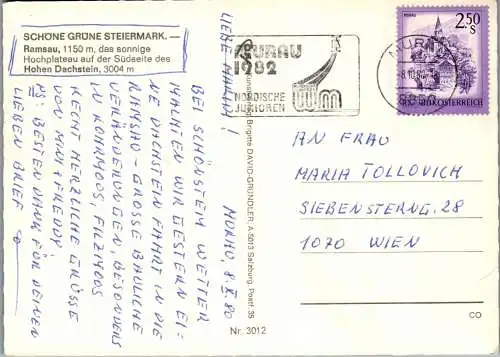 SCHÖNE GRÜNE STEIERMARK. —
Ramsau, 1150 m, das sonnige
Hochplateau auf der Südseite des
Hohen Dachstein, 3004 m
MURAU, 8.X.80
LIEBE MIZZI!
BEI SCHÖNSTEM WETTER
MACHTEN WIR GESTERN EI-
NE DACHSTEIN FAHRT IN DIE
RAMSAU - GROSSE BAULICHE
VERÄNDERUNGEN, BESONDERS
IN ROHRMOOS, FILZMOOS
RECHT HERZLICHE GRÜSSE
VON MINI + FREDDY!
PS: BESTEN DANK FÜR DEINEN
LIEBEN BRIEF
Brigitte DAVID-GRUNDLER, A-5013 Salzburg, Postf. 35
Nr. 3012
MURAU
1982
NORDISCHE
JUNIOREN
WM
MURAU
2.50
S
REPUBLIK ÖSTERREICH
AN FRAU
MARIA TOLLOVICH
SIEBENSTERNG. 28
1070 WIEN
CO